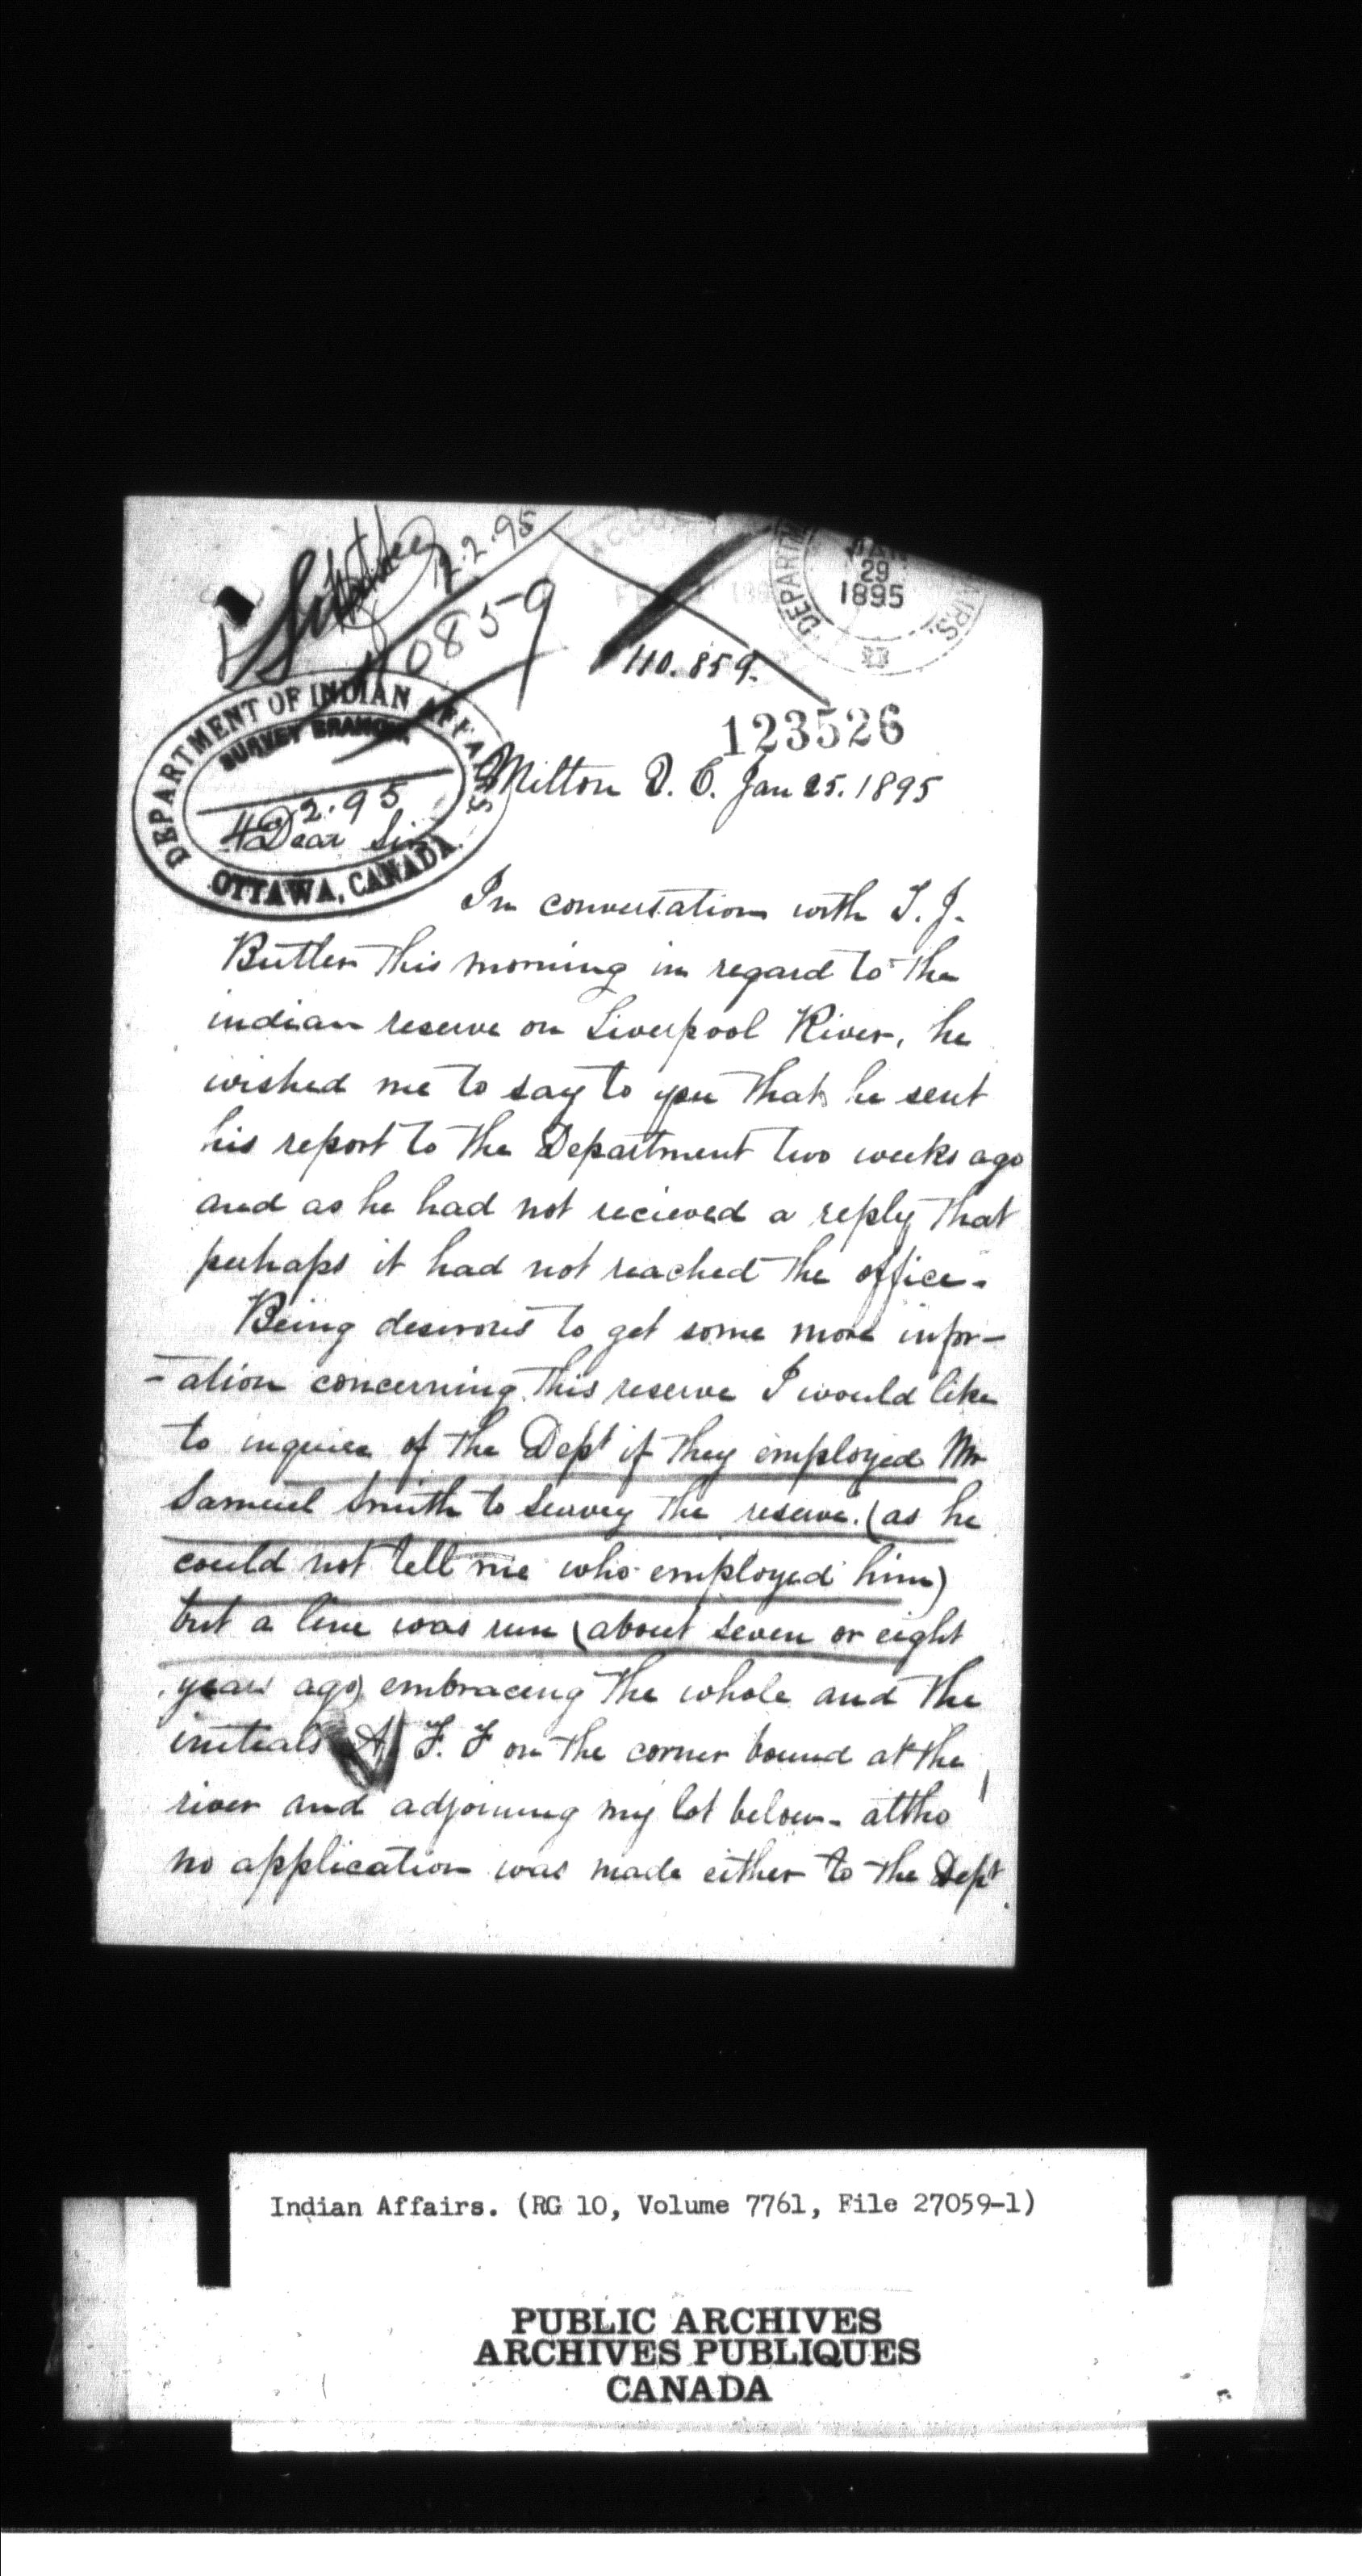 12.2.95
110859
DEPARTM
JAN
29
1895
AIRS.
110.859.
123526
DEPARTMENT OF INDIAN AFFAIRS
SURVEY BRANCH
4.2.95
OTTAWA, CANADA.
Milton Q. C. Jan 25. 1895
Dear Sir
In conversation with T. J.
Butler this morning in regard to the
indian reserve on Liverpool River, he
wished me to say to you that he sent
his report to the Department two weeks ago
and as he had not recieved a reply that
perhaps it had not reached the office-
Being desirous to get some more infor-
-ation concerning this reserve I would like
to inquire of the Dept if they employed Mr
Samuel Smith to survey the reserve. (as he
could not tell me who employed him)
but a line was run (about seven or eight
years ago) embracing the whole and the
initials A. F. F on the corner bound at the
river and adjoining my lot below- altho
no application was made either to the Dept
Indian Affairs. (RG 10, Volume 7761, File 27059-1)
PUBLIC ARCHIVES
ARCHIVES PUBLIQUES
CANADA